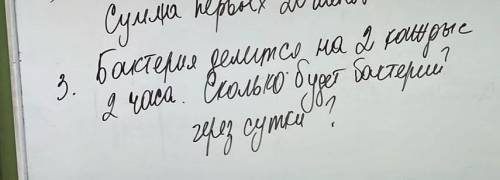 Сумма первых 20
3. Бактерия делится на 2 каждые
2 часа. Сколько будет бактерий
через сутки?